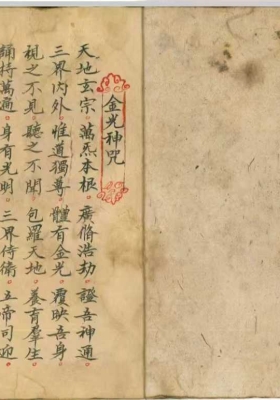 金光神咒
天地玄宗 萬炁本根 廣脩浩劫 證吾神通
三界內外 惟道獨尊 體有金光 覆映吾身
視之不見 聽之不聞 包羅天地 養育羣生
誦持萬遍 身有光明 三界侍衛 五帝司迎